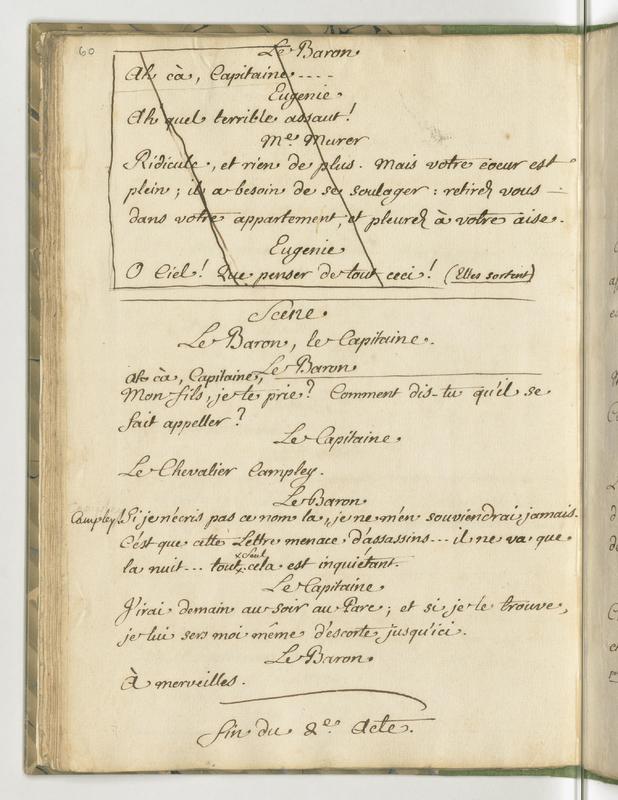 60
Le Baron.
Ah cà, Capitaine. - - - -
Eugenie.
Ah quel terrible assaut!
Me. Murer
Ridicule, et rien de plus. Mais votre coeur est
plein; il a besoin de se soulager: retirez vous —
dans votre appartement, et pleurez à votre aise.
Eugenie.
O Ciel! Que penser de tout ceci! (Elles sortent)
Scene.
Le Baron, le Capitaine.
Le Baron
Ah cà, Capitaine,
Mon fils, je te prie? Comment dis-tu qu'il se
fait appeller?
Le Capitaine.
Le Chevalier Campley.
Le Baron
Campley! Si je n'écris pas ce nom la, je ne m'en souviendrai jamais.
C'est que cette Lettre menace d'assassins... il ne va que
la nuit... tout cela est inquiétant.
x Seul
Le Capitaine
J'irai demain au soir au Parc; et si je le trouve,
je lui sers moi même d'escorte jusqu'ici.
Le Baron.
À merveilles.
fin du 2e. Acte.